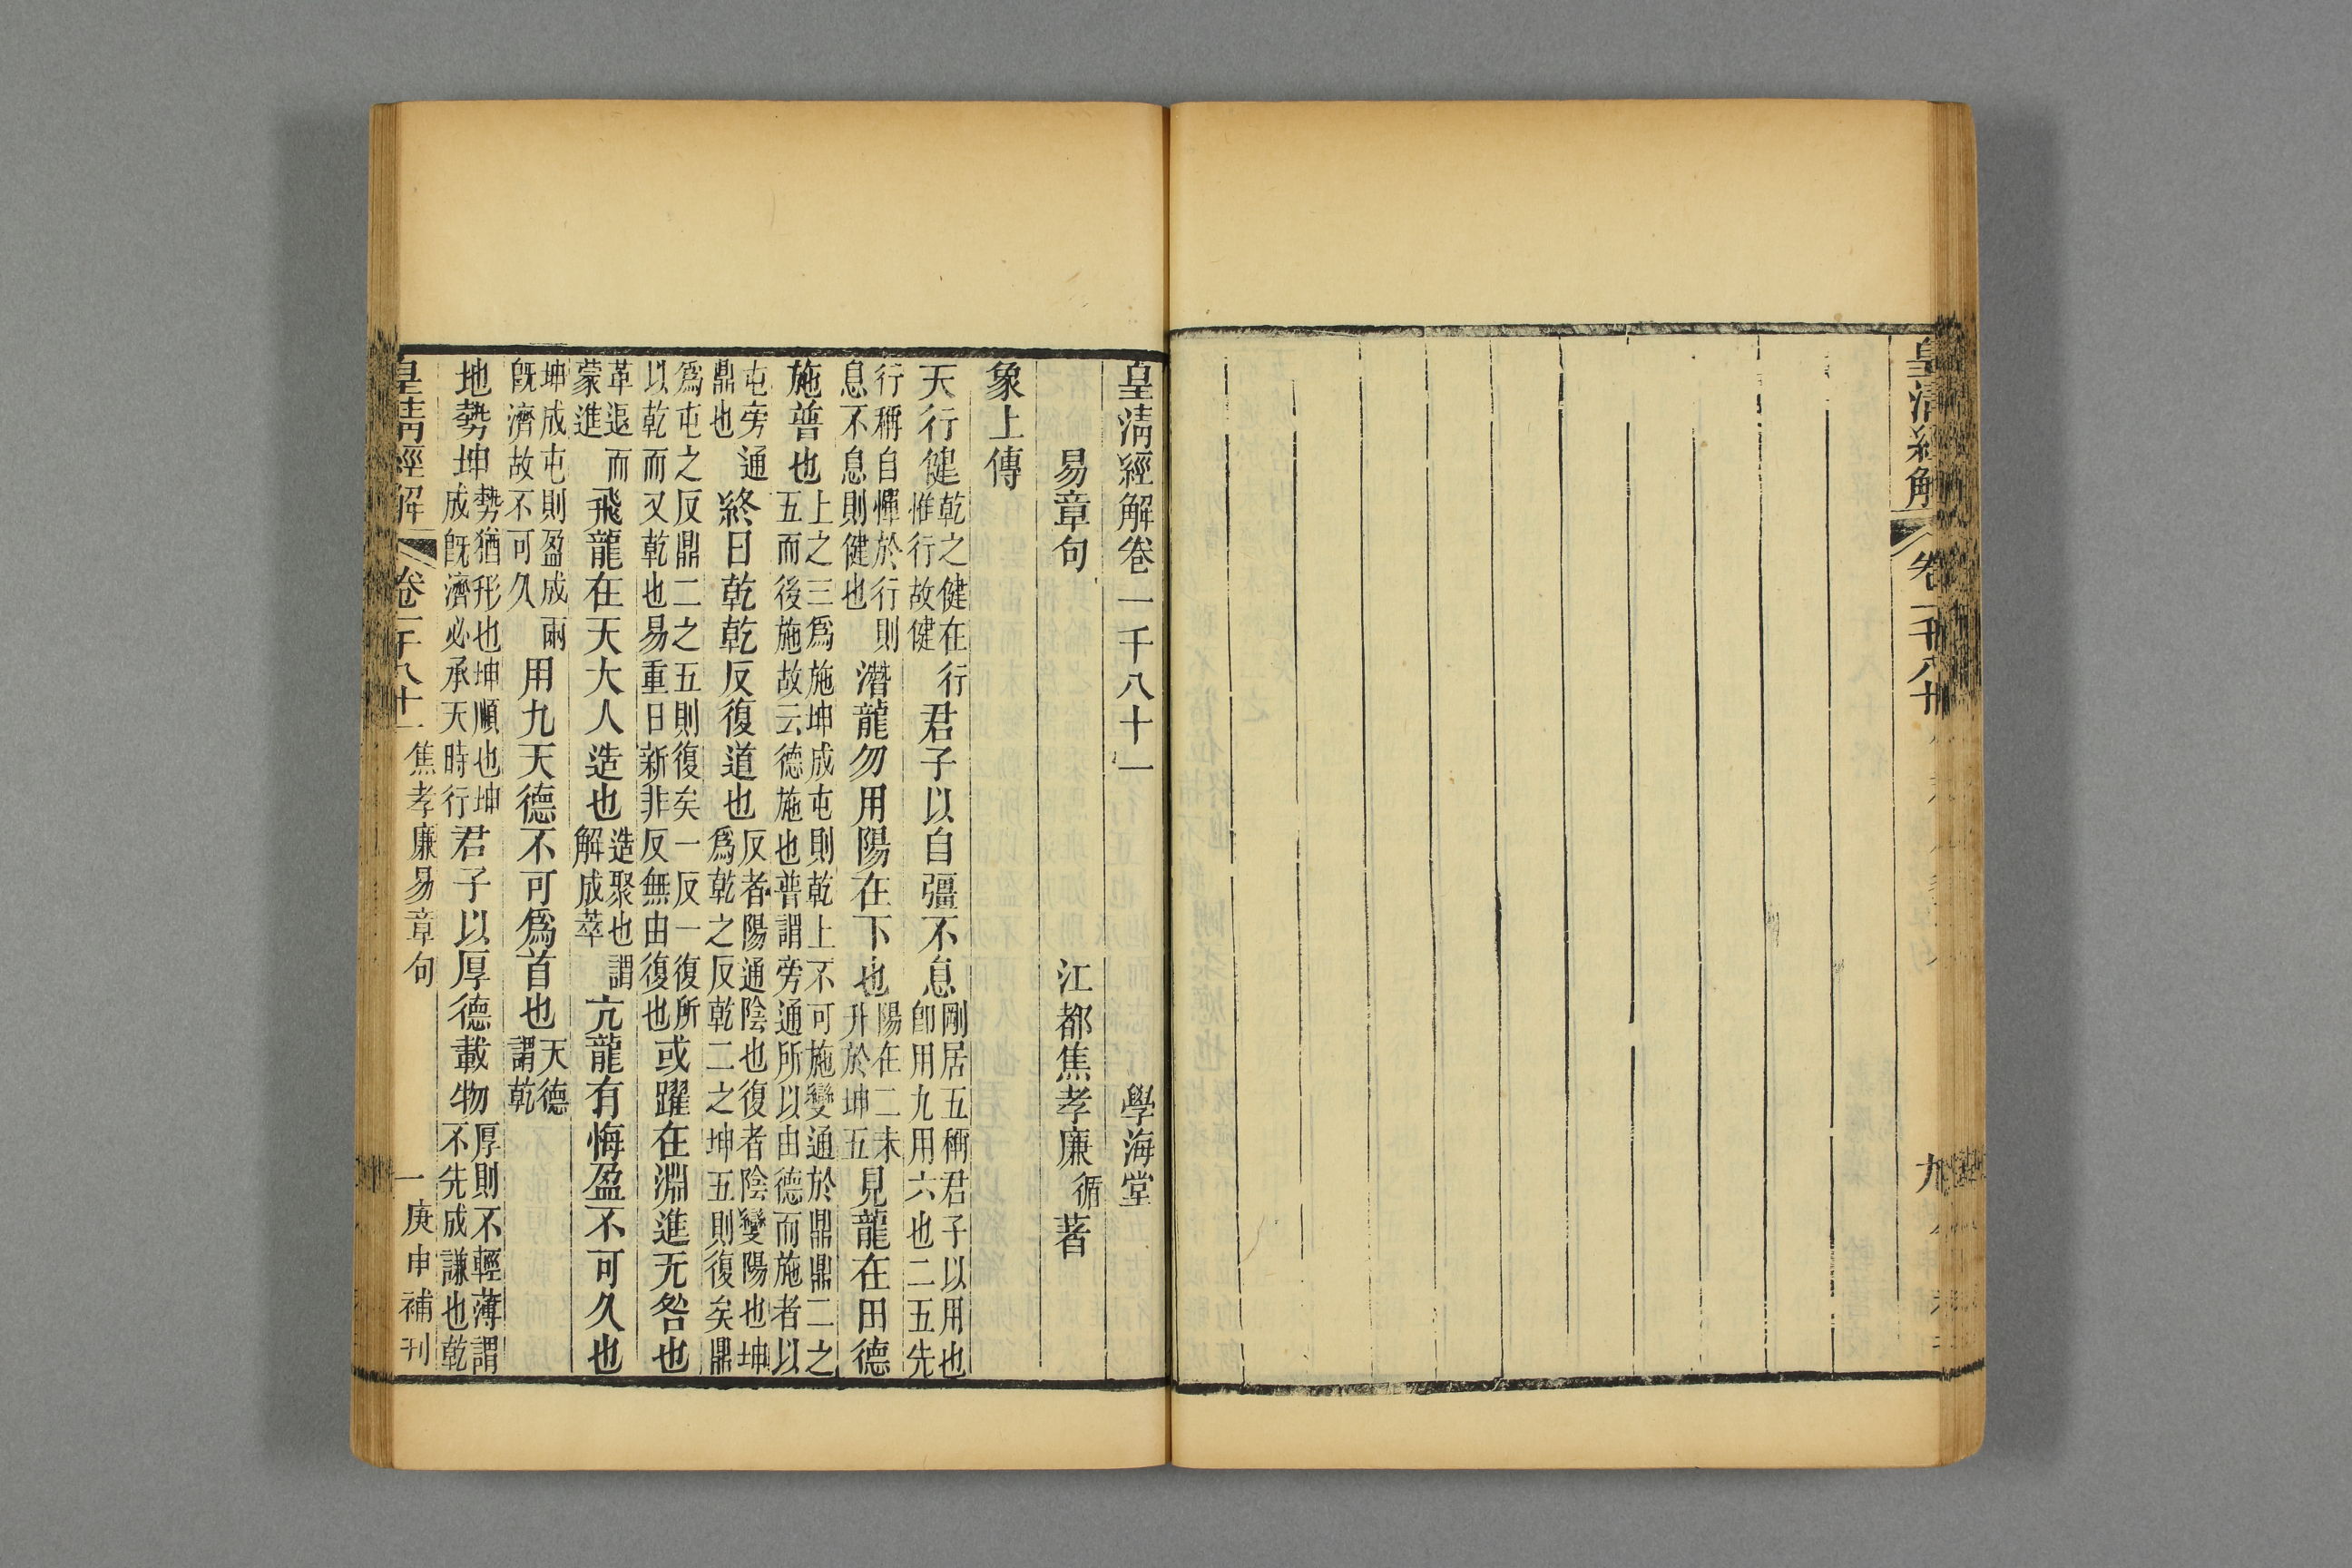 皇清經解 卷一千八十 九
皇清經解卷一千八十一 學海堂
易章句 江都焦孝廉循著
象上傳
天行健乾之健在行惟行故健君子以自彊不息剛居五稱君子以用也卽用九用六也二五先
行稱自惲於行則息不息則健也潛龍勿用陽在下也陽在二未升於坤五見龍在田德
施普也上之三爲施坤成屯則乾上不可施變通於鼎鼎二之五而後施故云德施也普謂旁通所以由德而施者以
屯旁通鼎也終日乾乾反復道也反者陽通陰也復者陰變陽也坤爲乾之反乾二之坤五則復矣鼎
爲屯之反鼎二之五則復矣一反一復所以乾而又乾也易重日新非反無由復也或躍在淵進无咎也
革退而蒙進飛龍在天大人造也造聚也謂解成萃亢龍有悔盈不可久也
坤成屯則盈成兩旣濟故不可久用九天德不可爲首也天德謂乾
地勢坤勢猶形也坤順也坤成旣濟必承天時行君子以厚德載物厚則不輕薄謂不先成謙也乾
皇清經解 卷一千八十一 焦孝廉易章句 一 庚申補刊